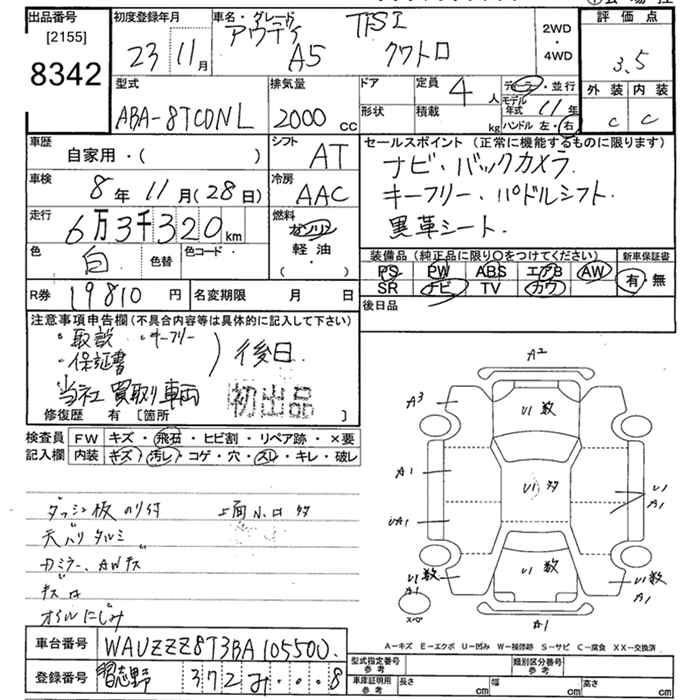 出品番号 初度登録年月 車名・グレード 評価点
[2155] アウディ TFSI 2WD
8342 23 11月 A5 クワトロ ・4WD 3.5
外装 内装
型式 排気量 ドア 定員 4人 ディーラー・並行
ABA-8TCDNL 2000cc 形状 積載 kg モデル年式 11年
ハンドル 左・右 C C
車歴 シフト セールスポイント(正常に機能するものに限ります)
自家用・( ) AT ナビ・バックカメラ.
車検 冷房 キーフリー・パドルシフト.
8年11月(28日) AAC 黒革シート.
走行 燃料
6万3千320km ガソリン
色 色替 色コード・ 軽油 装備品(純正品に限り○をつけてください) 新車保証書
白. ( ) PS PW ABS エアB AW 有・無
R券 19810円 名変期限 月 日 SR ナビ TV カワ
後日品
注意事項申告欄(不具合内容等は具体的に記入して下さい)
・取説 ・キーフリー
・保証書 ) 後日.
当社買取り車両 初出品
修復歴 有 [箇所 ]
検査員 FW キズ・飛石・ヒビ割・リペア跡・×要
記入欄 内装 キズ・汚レ・コゲ・穴・スレ・キレ・破レ
A2
A3 U1数
A1 U1 A1
UA1
U1数 A1 U1数 U1数 A1
スペア A1
ダッシュ板のり付
天バリタルミ
カミラー、AWキズ
オイルにじみ
A-キズ E-エクボ U-凹み W-補修跡 S-サビ C-腐食 XX-交換済
車台番号 WAUZZZ8T3BA105500.
登録番号 習志野 372 み ・・・8
型式指定番号 参考 類別区分番号 参考
車庫証明用 参考 長さ cm 幅 cm 高さ cm